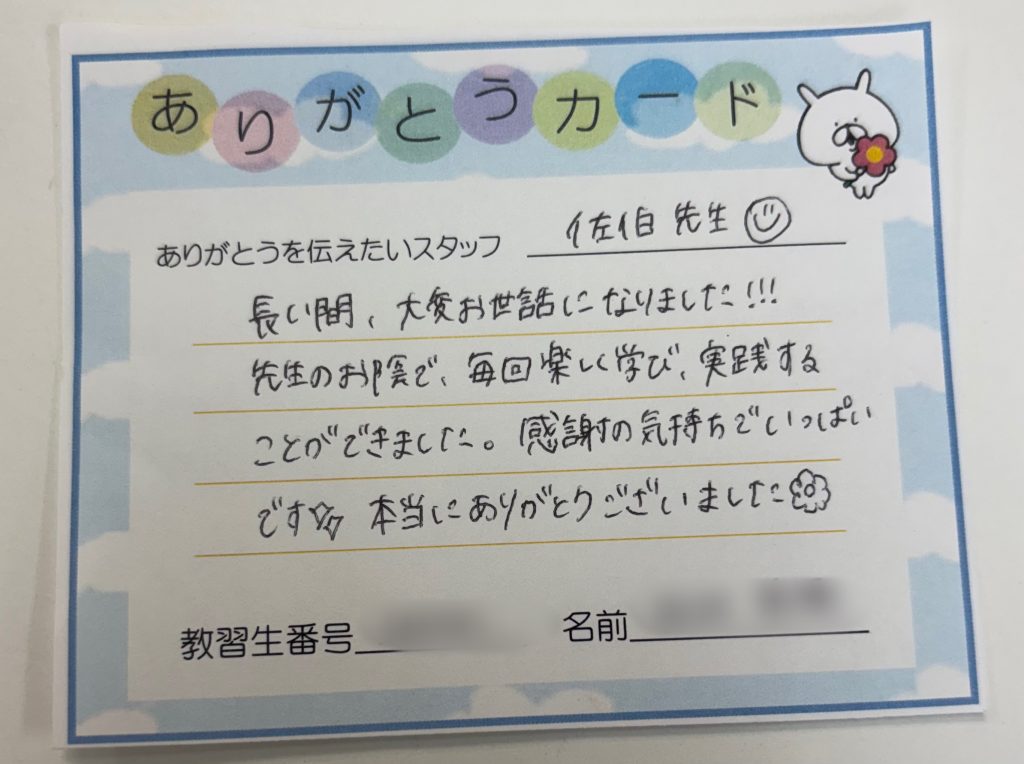 ありがとうカード
ありがとうを伝えたいスタッフ 佐伯先生
長い間、大変お世話になりました!!!
先生のお陰で、毎回楽しく学び、実践する
ことができました。感謝の気持ちでいっぱい
です 本当にありがとうございました
教習生番号 名前